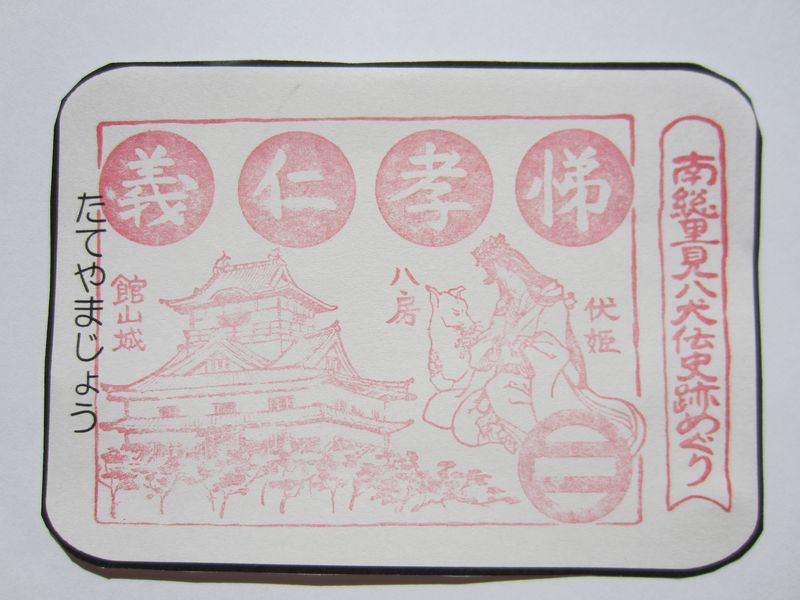 南総里見八犬伝史跡めぐり
悌
孝
仁
義
伏姫
八房
館山城
たてやまじょう